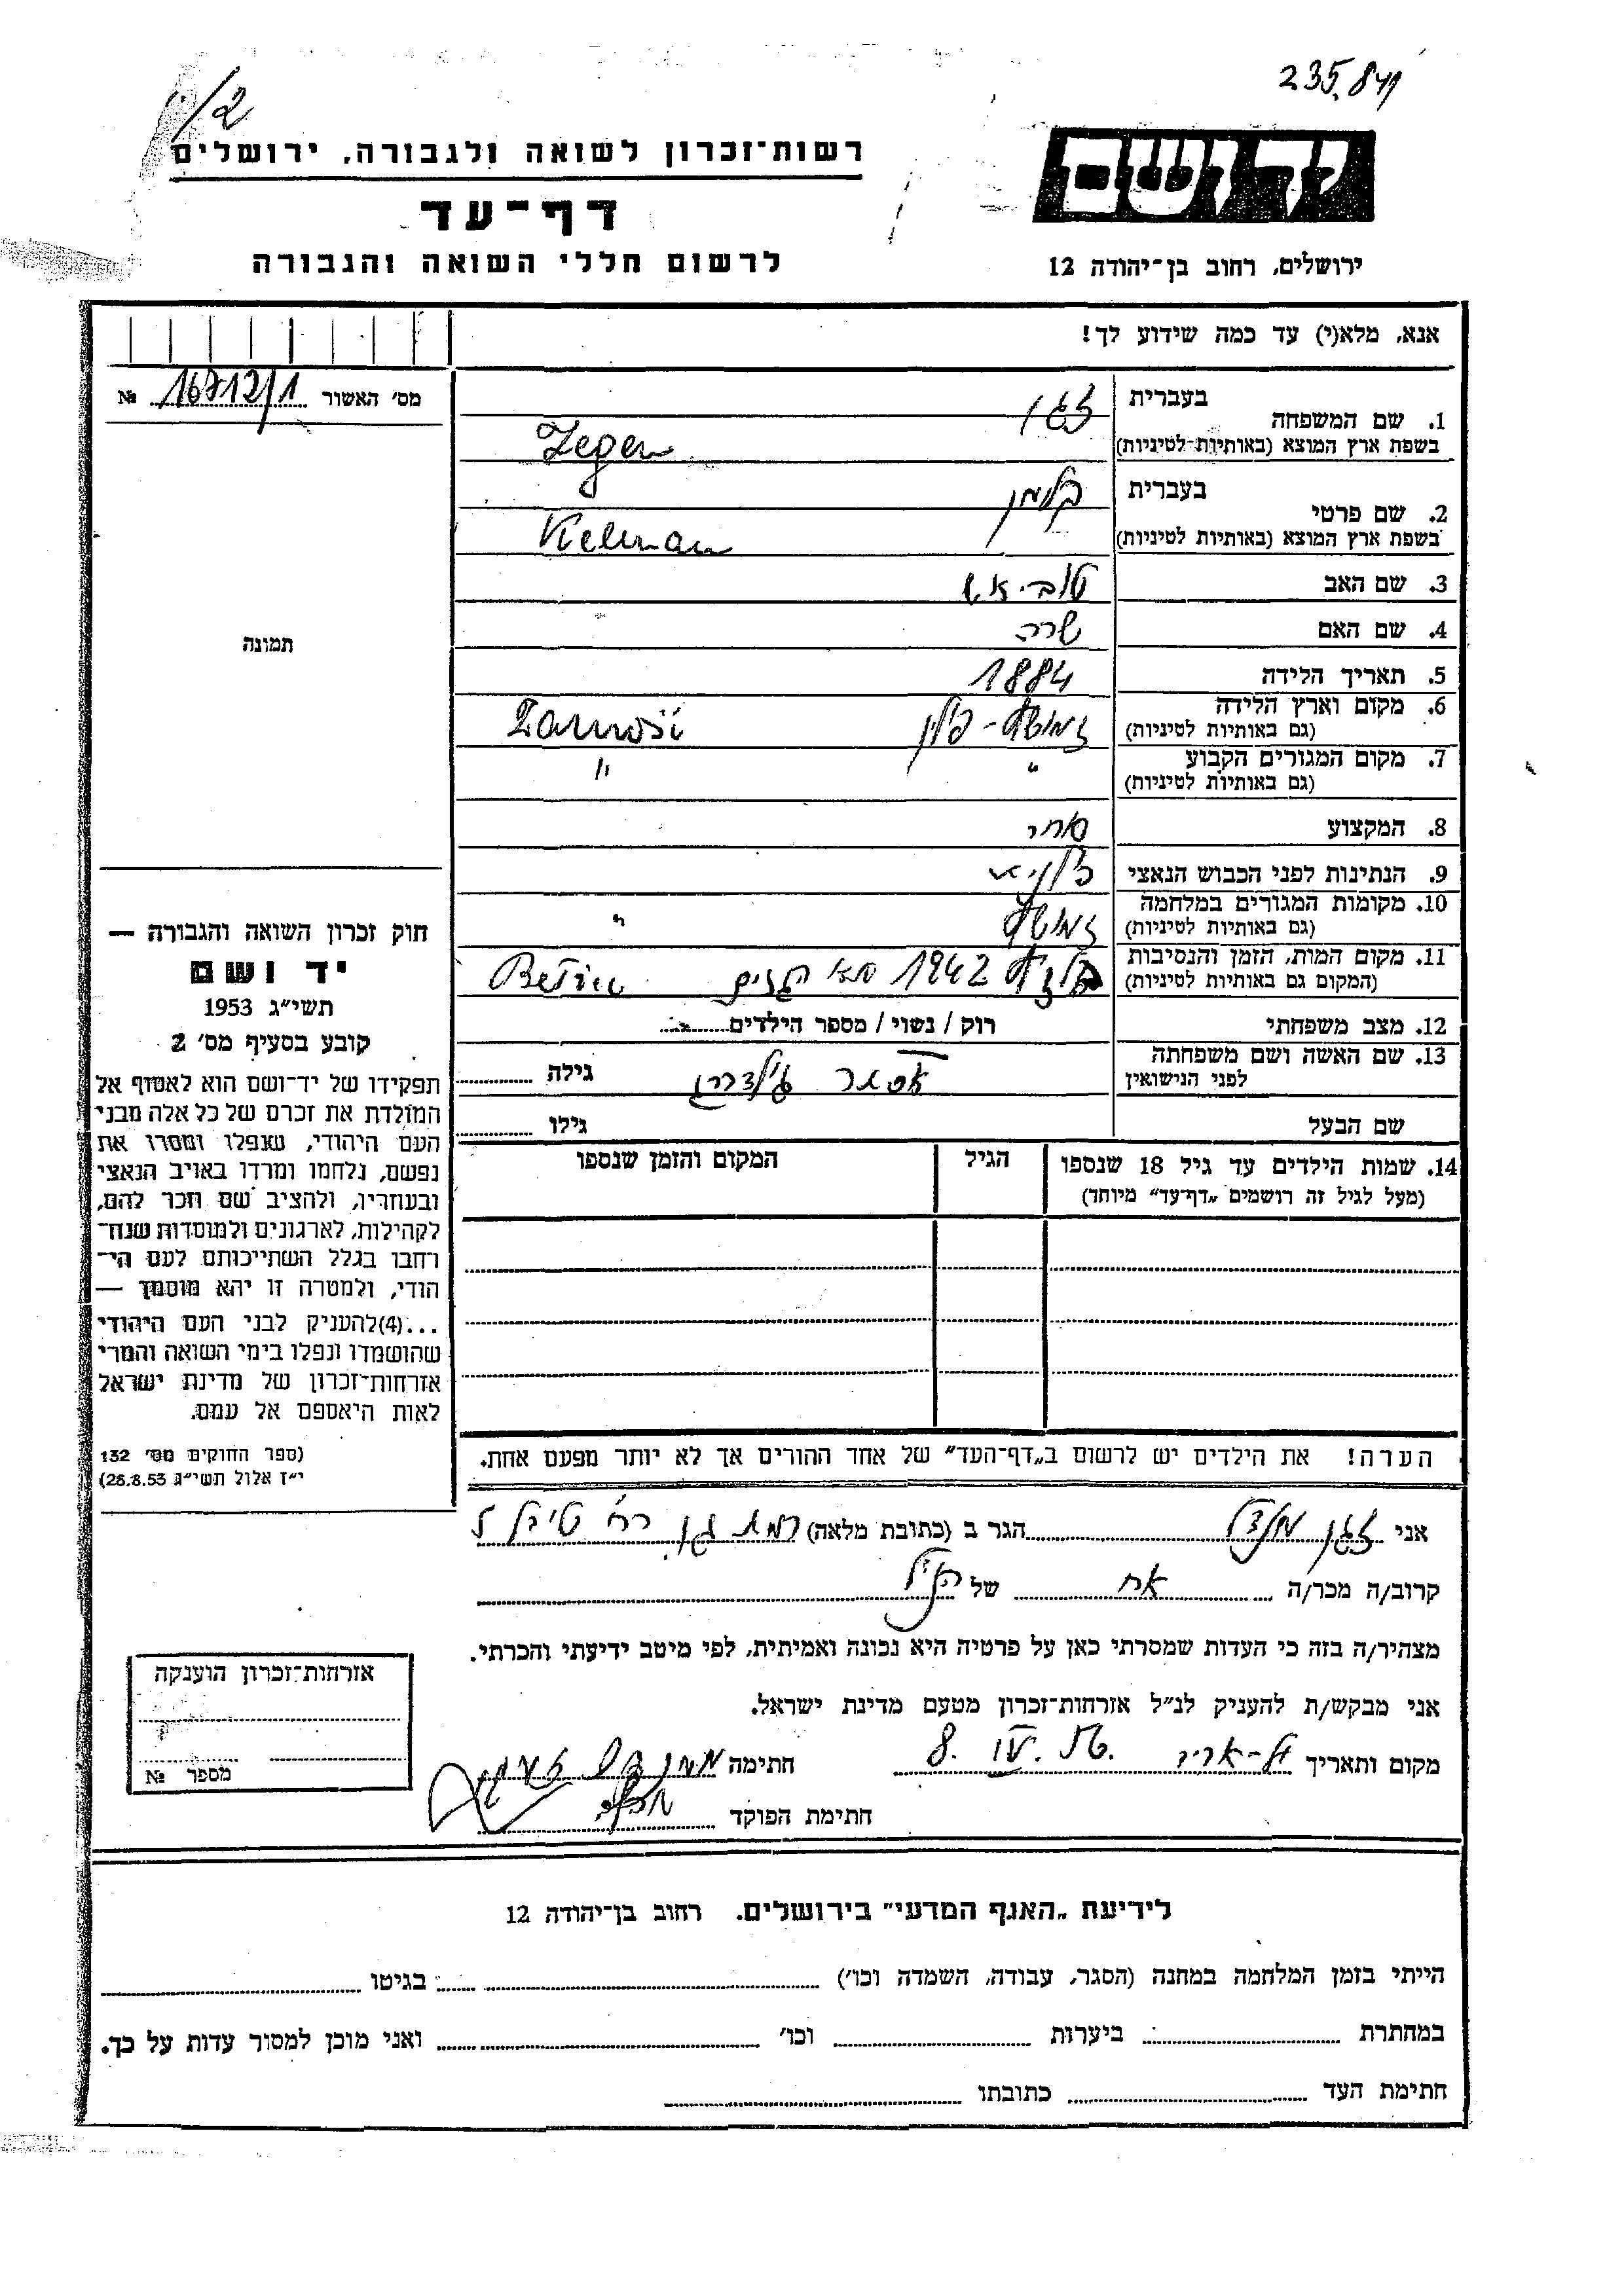 235.841
1/2
רשות־זכרון לשואה ולגבורה, ירושלים
יד ושם
דף־עד
לרשום חללי השואה והגבורה
ירושלים, רחוב בן־יהודה 12
אנא, מלא(י) עד כמה שידוע לך!
מס' האשור 16712/1 №
1. שם המשפחה
בעברית זגן
בשפת ארץ המוצא (באותיות לטיניות) Zegen
2. שם פרטי
בעברית קלמן
בשפת ארץ המוצא (באותיות לטיניות) Kelman
3. שם האב טוביאש
4. שם האם שרה
5. תאריך הלידה 1884
6. מקום וארץ הלידה זמושץ - פולין Zamość
(גם באותיות לטיניות)
7. מקום המגורים הקבוע " "
(גם באותיות לטיניות)
8. המקצוע סוחר
9. הנתינות לפני הכבוש הנאצי פולניא
10. מקומות המגורים במלחמה זמושץ "
(גם באותיות לטיניות)
11. מקום המות, הזמן והנסיבות בלזיץ 1942
(המקום גם באותיות לטיניות)
12. מצב משפחתי רוק / נשוי / מספר הילדים
13. שם האשה ושם משפחתה אסתר גילה
לפני הנישואין
שם הבעל גילו
14. שמות הילדים עד גיל 18 שנספו הגיל המקום והזמן שנספו
(מעל לגיל זה רושמים „דף־עד" מיוחד)
הערה! את הילדים יש לרשום ב„דף־העד" של אחד ההורים אך לא יותר מפעם אחת.
תמונה
חוק זכרון השואה והגבורה —
יד ושם
תשי"ג 1953
קובע בסעיף מס' 2
תפקידו של יד־ושם הוא לאסוף אל
המולדת את זכרם של כל אלה מבני
העם היהודי, שנפלו ומסרו את
נפשם, נלחמו ומרדו באויב הנאצי
ובעוזריו, ולהציב שם וזכר להם,
לקהילות, לארגונים ולמוסדות שנח־
רחבו בגלל השתייכותם לעם הי־
הודי, ולמטרה זו יהא מוסמך —
...(4)להעניק לבני העם היהודי
שהושמדו ונפלו בימי השואה והמרי
אזרחות־זכרון של מדינת ישראל
לאות היאספם אל עמם.
(ספר החוקים מס' 132
י"ז אלול תשי"ג 28.8.53)
אני זגן מנדל הגר ב (כתובת מלאה) רמת גן רח'
קרוב/ה מכר/ה אח של הנ"ל
מצהיר/ה בזה כי העדות שמסרתי כאן על פרטיה היא נכונה ואמיתית, לפי מיטב ידיעתי והכרתי.
אני מבקש/ת להעניק לנ"ל אזרחות־זכרון מטעם מדינת ישראל.
מקום ותאריך תל-אביב 8. IV. 56. חתימה
חתימת הפוקד
אזרחות־זכרון הוענקה
מספר №
לידיעת „האגף המדעי" בירושלים. רחוב בן־יהודה 12
הייתי בזמן המלחמה במחנה (הסגר, עבודה, השמדה וכו') בגיטו
במחתרת ביערות וכו' ואני מוכן למסור עדות על כך.
חתימת העד כתובתו